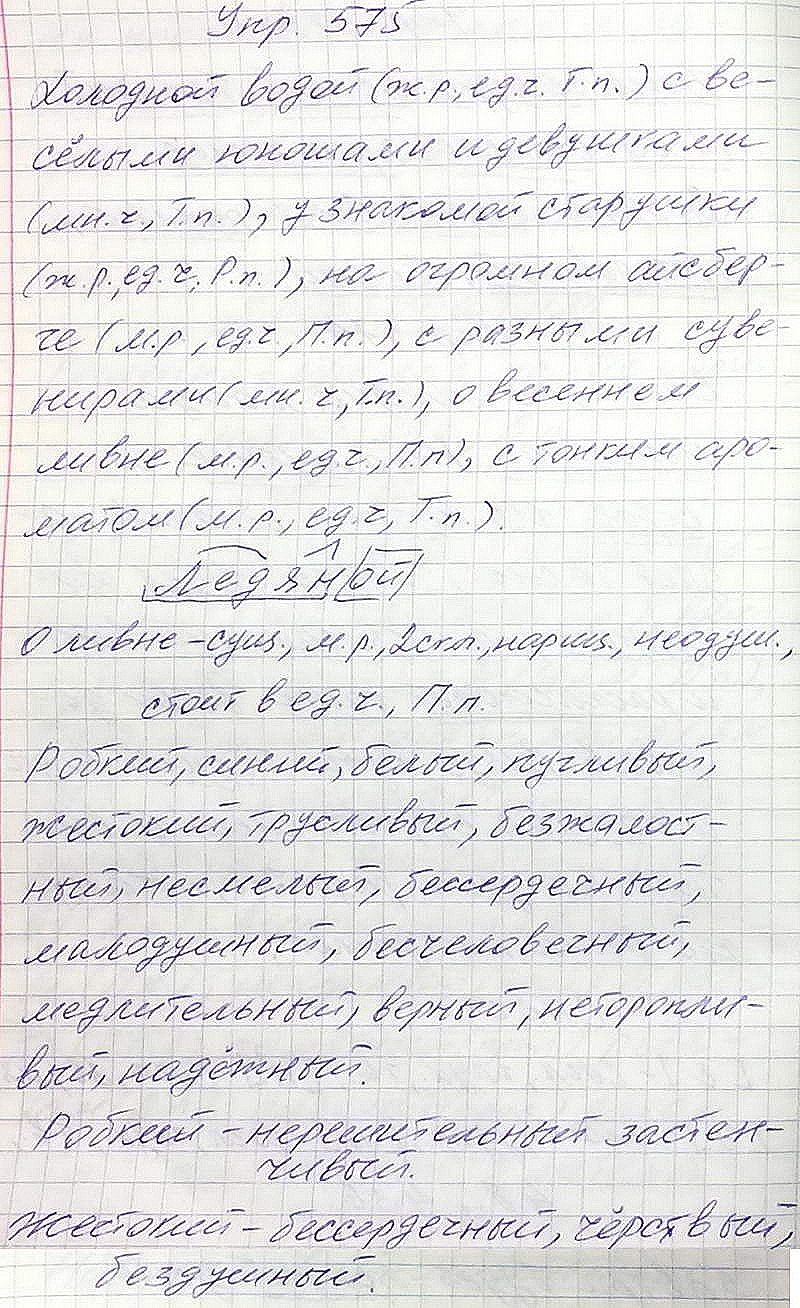 Упр. 575
Холодной водой (ж.р., ед.ч. Т.п.) с ве-
сёлыми юношами и девушками
(мн.ч., Т.п.), у знакомой старушки
(ж.р., ед.ч., Р.п.), на огромном айсбер-
ге (м.р., ед.ч., П.п.), с разными суве-
нирами (мн.ч, Т.п.), о весеннем
ливне (м.р., ед.ч., П.п), с тонким аро-
матом (м.р., ед.ч, Т.п.).
Ледяной
О ливне - сущ., м.р., 2скл., нариц., неодуш.,
стоит в ед.ч., П.п.
Робкий, синий, белый, пугливый,
жестокий, трусливый, безжалост-
ный, несмелый, бессердечный,
малодушный, бесчеловечный,
медлительный, верный, неторопли-
вый, надёжный.
Робкий - нерешительный застен-
чивый.
Жестокий - бессердечный, чёрствый,
бездушный.